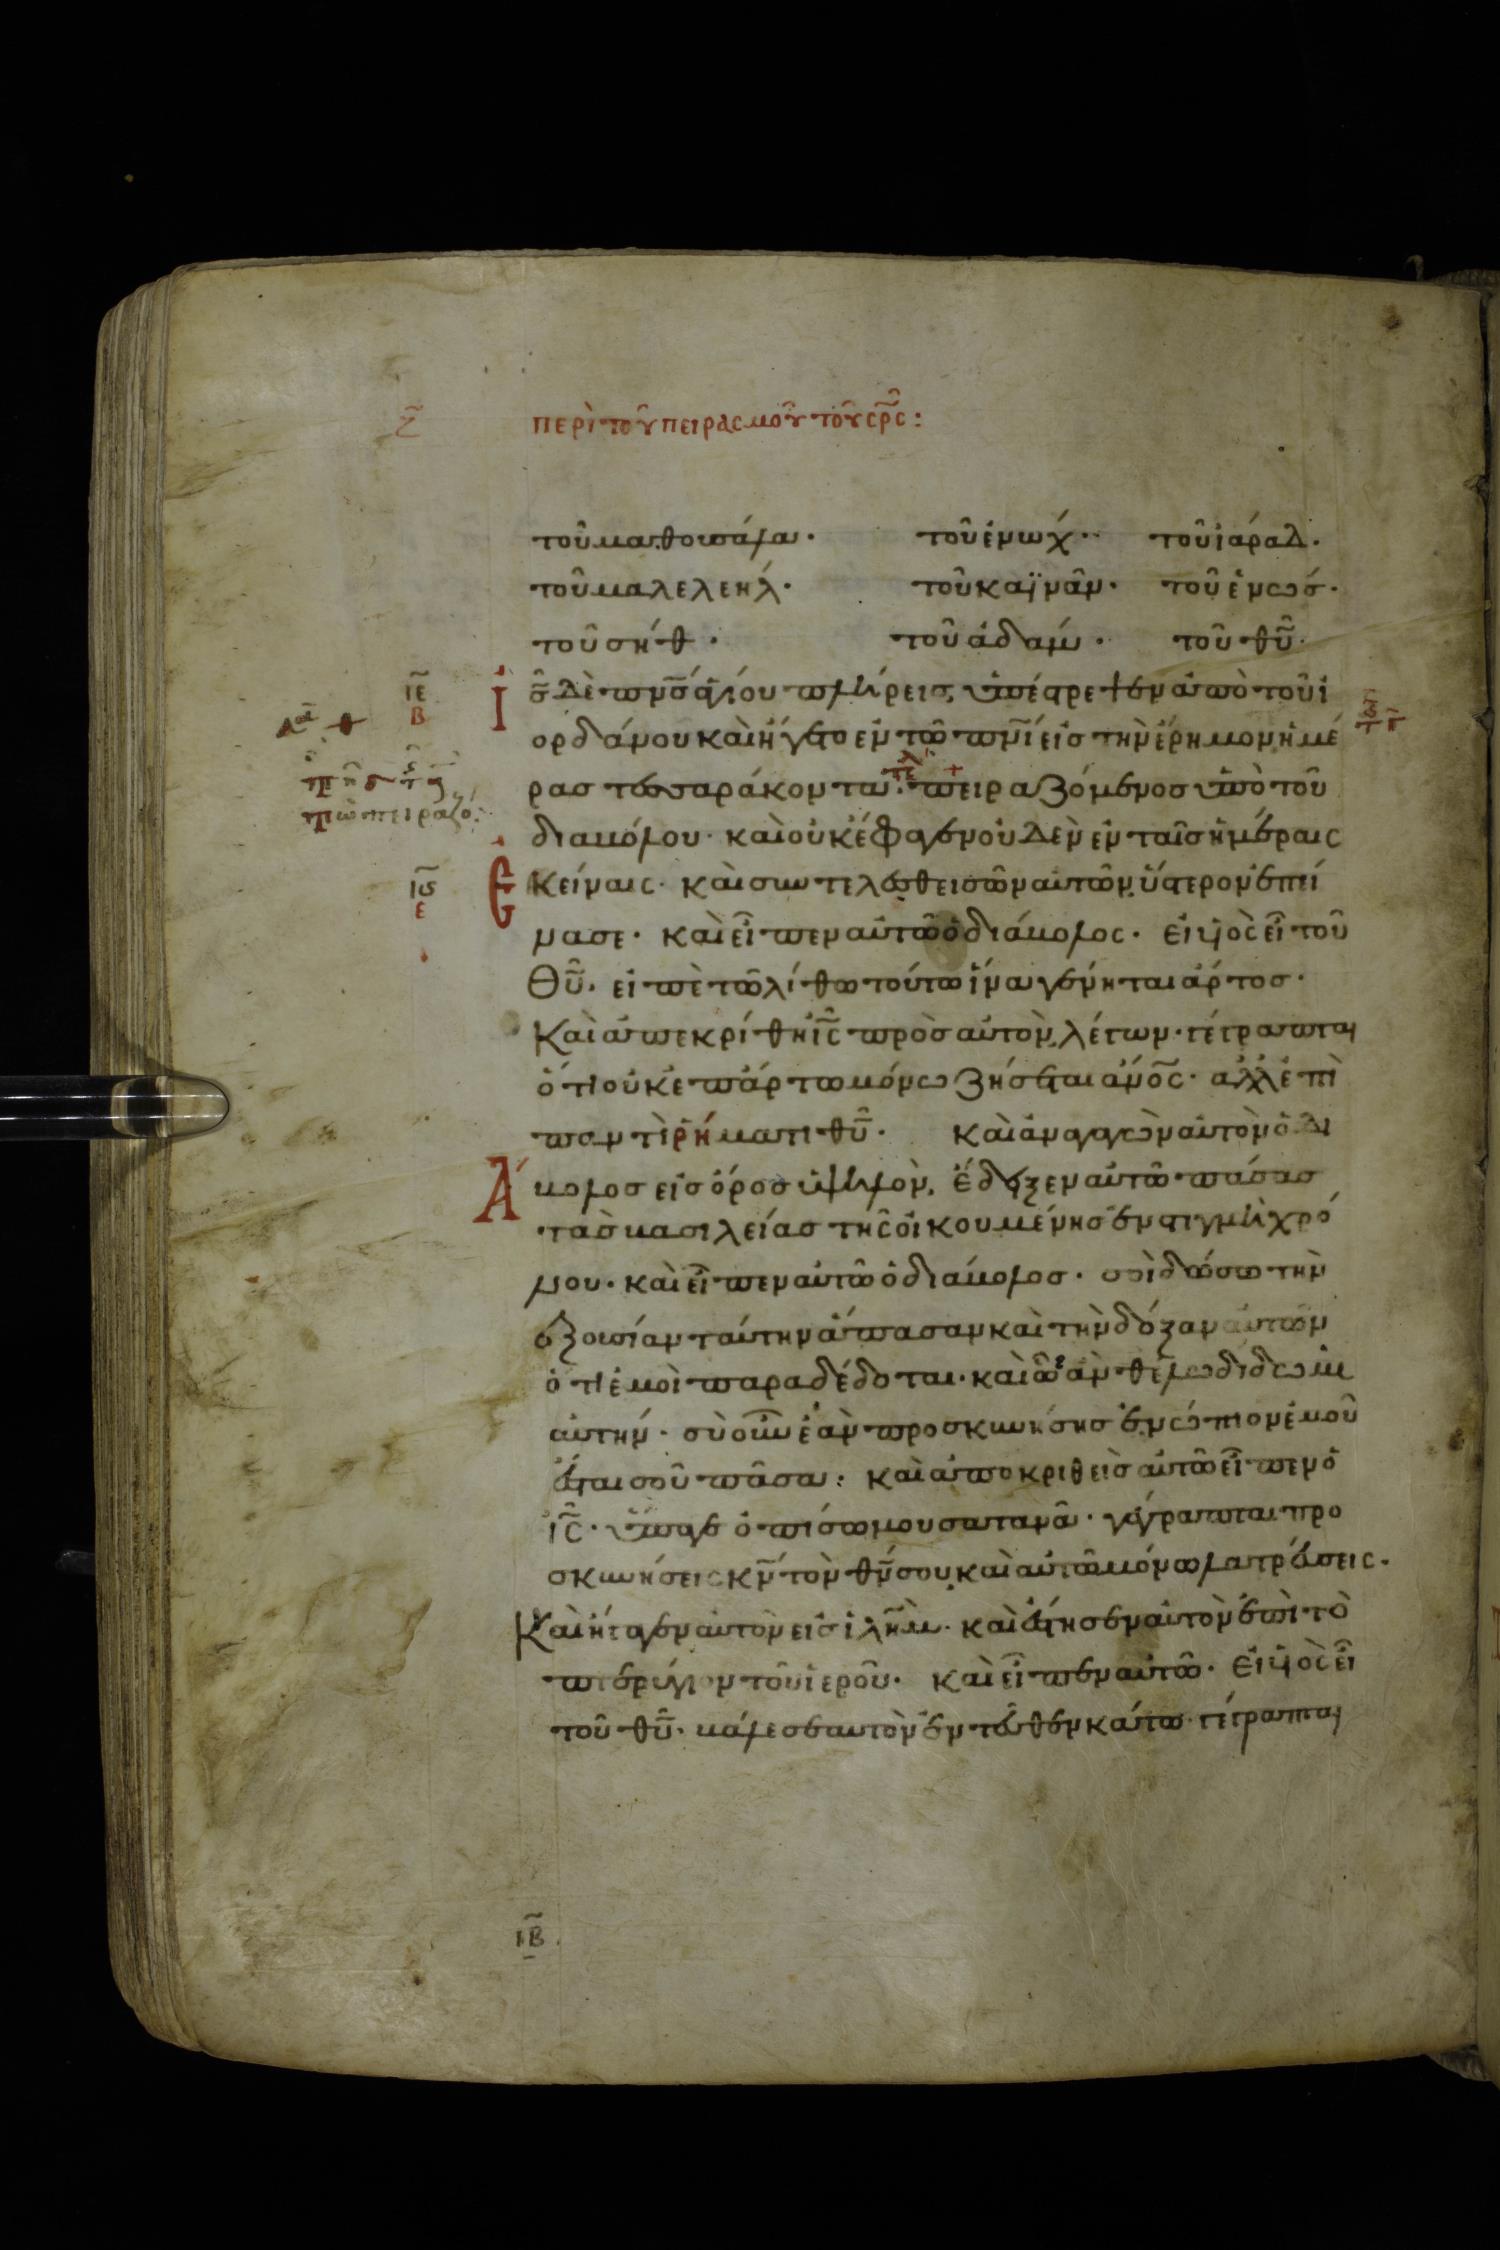 ζ περὶ τοῦ πειρασμοῦ τοῦ σρς:
τοῦ μαθουσάλα· τοῦ ἐνωχ· τοῦ ἰάραδ·
τοῦ μαλελεήλ· τοῦ καϊνᾶν· τοῦ ἐνωσ·
τοῦ σήθ· τοῦ ἀδαμ· τοῦ θῦ·
ιε Ἰσ δὲ πνσ ἁγίου πλήρεισ, ὑπέστρεψεν ἀπὸ τοῦ ἰ
β ορδάνου καὶ ἤγετο ἐν τῶ πνι εἰσ τὴν ἔρημον ἡμέ
ρασ τεσσαράκοντα· πειραζόμενοσ ὑπὸ τοῦ
διαβόλου· καὶ οὐκ ἔφαγεν οὐδὲν ἐν ταῖσ ἡμέραις
ις Ἐκείναις· καὶ συντελεσθεισῶν αὐτῶν, ὕστερον ἐπεί
ε νασε· καὶ εἶπεν αὐτῶ ὁ διάβολος· εἰ υἱὸς εἶ τοῦ
Θῦ· εἰπὲ τῶ λίθω τούτω ἵνα γένηται ἄρτοσ·
Καὶ ἀπεκρίθη ἰς πρὸσ αὐτὸν, λέγων· γέγραπται
ὅτι οὐκ ἐπ ἄρτω μόνω ζήσεται ἀνος· ἀλλ ἐπὶ
παντὶ ῥήματι θῦ· καὶ ἀναγαγὼν αὐτὸν ὁ δι
Ἀβολοσ εἰσ ὄροσ ὑψηλὸν, ἔδειξεν αὐτῶ πάσασ
τὰσ βασιλείασ τῆς οἰκουμένησ ἐν στιγμῆ χρό
νου· καὶ εἶπεν αὐτῶ ὁ διάβολοσ· σοὶ δώσω τὴν
ἐξουσίαν ταύτην ἅπασαν καὶ τὴν δόξαν αὐτῶν
ὅτι ἐμοὶ παραδέδοται· καὶ ὧ ἐὰν θέλω δίδωμι
αὐτήν· σὺ οὖν ἐὰν προσκυνήσησ ἐνώπιον ἐμοῦ
ἔσται σοῦ πᾶσα: καὶ ἀποκριθεὶσ αὐτῶ εἶπεν ὁ
ἰς· ὕπαγε ὀπίσω μου σατανᾶ· γέγραπται προ
σκυνήσεις κν τὸν θν σου, καὶ αὐτῶ μόνω λατρεύσεις·
Καὶ ἤγαγεν αὐτὸν εἰσ ἰλημ· καὶ ἔστησεν αὐτὸν ἐπὶ τὸ
πτερύγιον τοῦ ἱεροῦ· καὶ εἶπεν αὐτῶ· Εἰ υἱὸς εἶ
τοῦ θῦ· βάλε σεαυτὸν ἐντεῦθεν κάτω· γέγραπται
ΙΒ